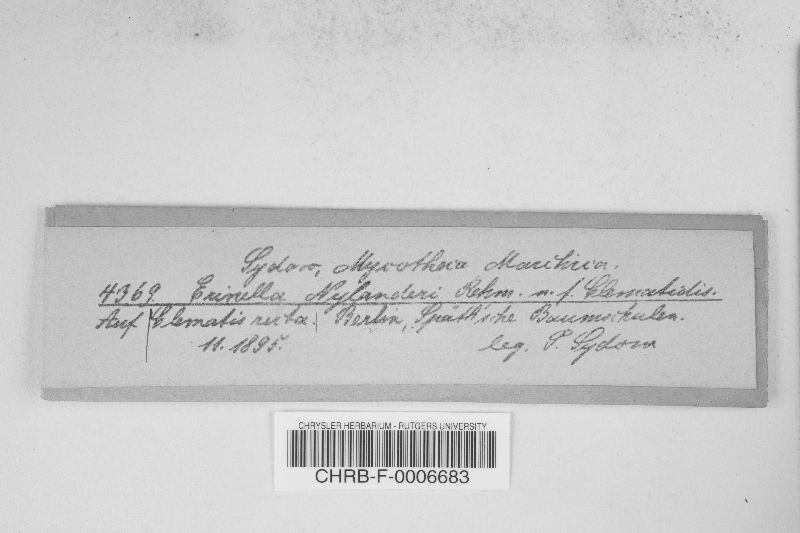 Sydow, Mycotheca Marchica.
4369 Erinella Nylanderi Rehm. n. f. Clematidis.
Auf Clematis recta. Berlin, Späth'sche Baumschulen.
11. 1895. leg. P. Sydow
CHRYSLER HERBARIUM - RUTGERS UNIVERSITY
CHRB-F-0006683